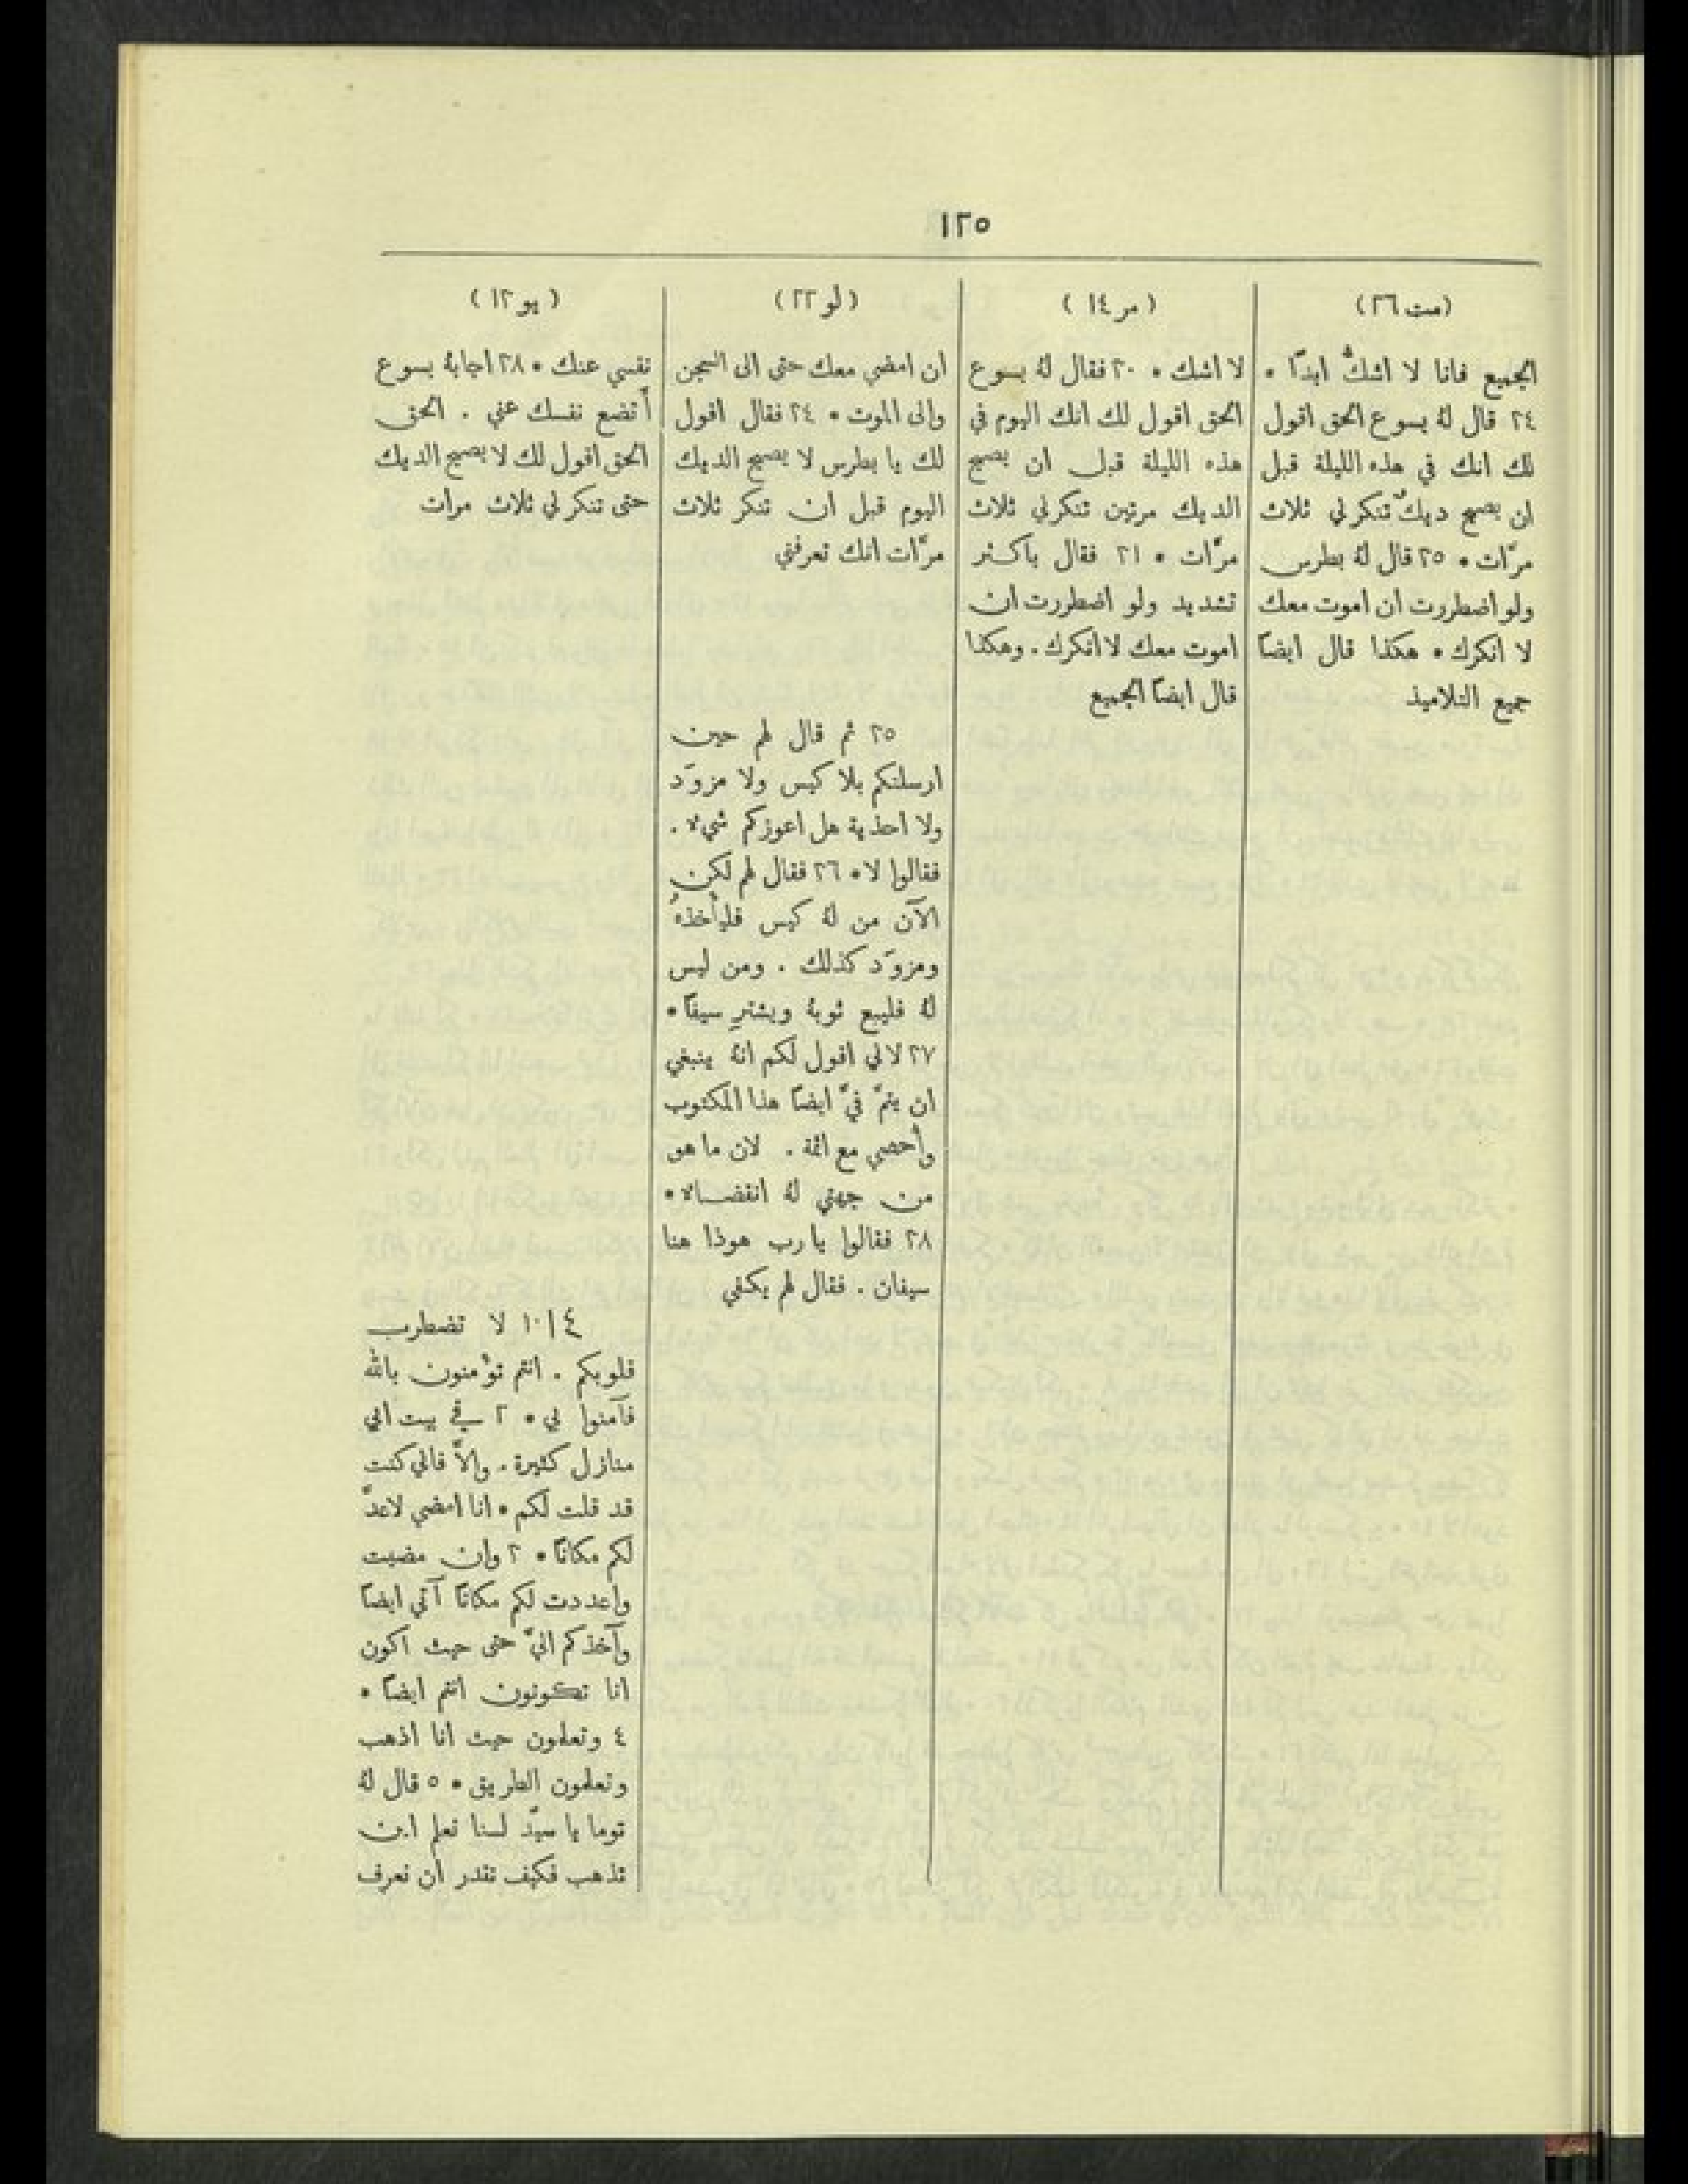 ١٢٥
(مت ٢٦)
الجميع فانا لا اشكّ ابدًا *
٣٤ قال لهُ يسوع الحق اقول
لك انك في هذه الليلة قبل
ان يصيح ديكٌ تنكرني ثلاث
مرّات * ٣٥ قال لهُ بطرس
ولو اضطررت ان اموت معك
لا انكرك * هكذا قال ايضًا
جميع التلاميذ
(مر ١٤)
لا اشك * ٣٠ فقال لهُ يسوع
الحق اقول لك انك اليوم في
هذه الليلة قبل ان يصيح
الديك مرتين تنكرني ثلاث
مرّات * ٣١ فقال باكثر
تشديد ولو اضطررت ان
اموت معك لا انكرك . وهكذا
قال ايضًا الجميع
(لو ٢٢)
ان امضي معك حتى الى السجن
والى الموت * ٣٤ فقال اقول
لك يا بطرس لا يصيح الديك
اليوم قبل ان تنكر ثلاث
مرّات انك تعرفني
٣٥ ثم قال لهم حين
ارسلتكم بلا كيس ولا مزوَد
ولا احذية هل اعوزكم شيء .
فقالوا لا * ٣٦ فقال لهم لكن
الآن من لهُ كيس فليأخذهُ
ومزوَد كذلك . ومن ليس
لهُ فليبع ثوبهُ ويشترِ سيفًا *
٣٧ لاني اقول لكم انهُ ينبغي
ان يتمّ فيّ ايضًا هذا المكتوب
وأحصي مع اثمة . لان ما هو
من جهتي لهُ انقضاء *
٣٨ فقالوا يا رب هوذا هنا
سيفان . فقال لهم يكفي
(يو ١٣)
نفسي عنك * ٣٨ اجابهُ يسوع
أتضع نفسك عني . الحق
الحق اقول لك لا يصيح الديك
حتى تنكرني ثلاث مرات
١٠١٤ لا تضطرب
قلوبكم . انتم تؤمنون بالله
فآمنوا بي * ٢ في بيت ابي
منازل كثيرة . والاّ فاني كنت
قد قلت لكم * انا امضي لاعدّ
لكم مكانًا * ٣ وان مضيت
واعددت لكم مكانًا آتي ايضًا
وآخذكم اليّ حتى حيث اكون
انا تكونون انتم ايضًا *
٤ وتعلمون حيث انا اذهب
وتعلمون الطريق * ٥ قال لهُ
توما يا سيّد لسنا نعلم اين
تذهب فكيف نقدر ان نعرف